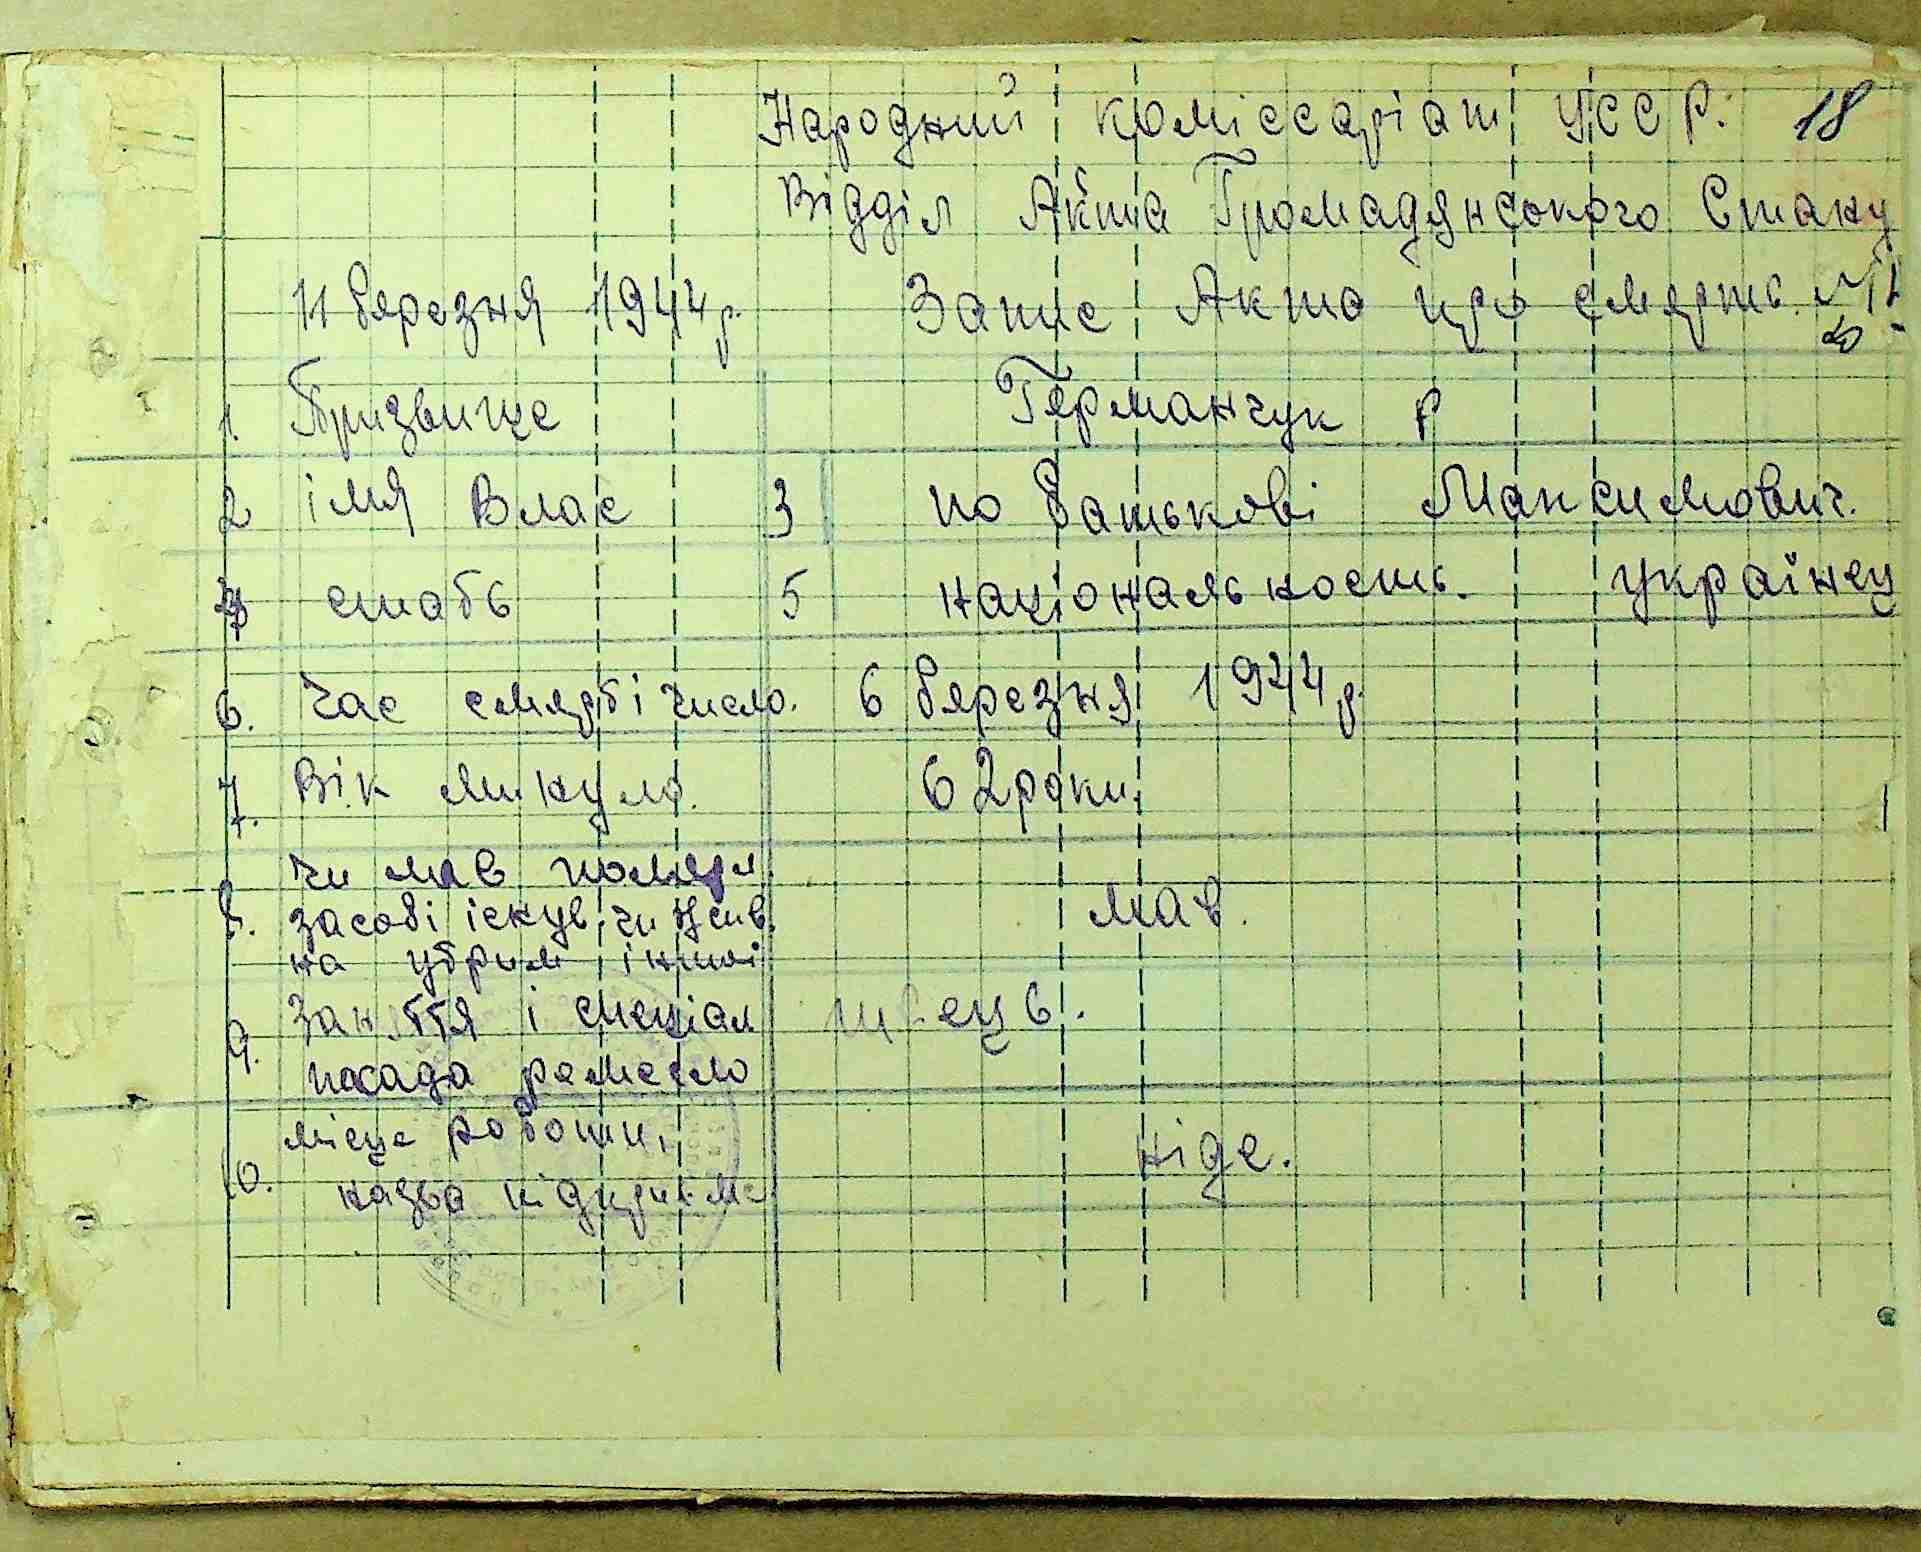 Народний коміссаріат УССР. 18
Відділ Акта Громадянського Стану
11 березня 1944 р. Запис Акта про смерть №
1. Призвище Германчук
2 імя Влас 3 по батькові Максимович.
4 стать 5 національность. украінец
6. Час смерті число. 6 березня 1944 р.
7. Вік минуло. 62 роки.
Чи мав помер
8. засобі існув. чи мав.
на утрим інший
9. Заняття і спеціал швець.
посада ремесло
місце роботи,
10. назва ніде.